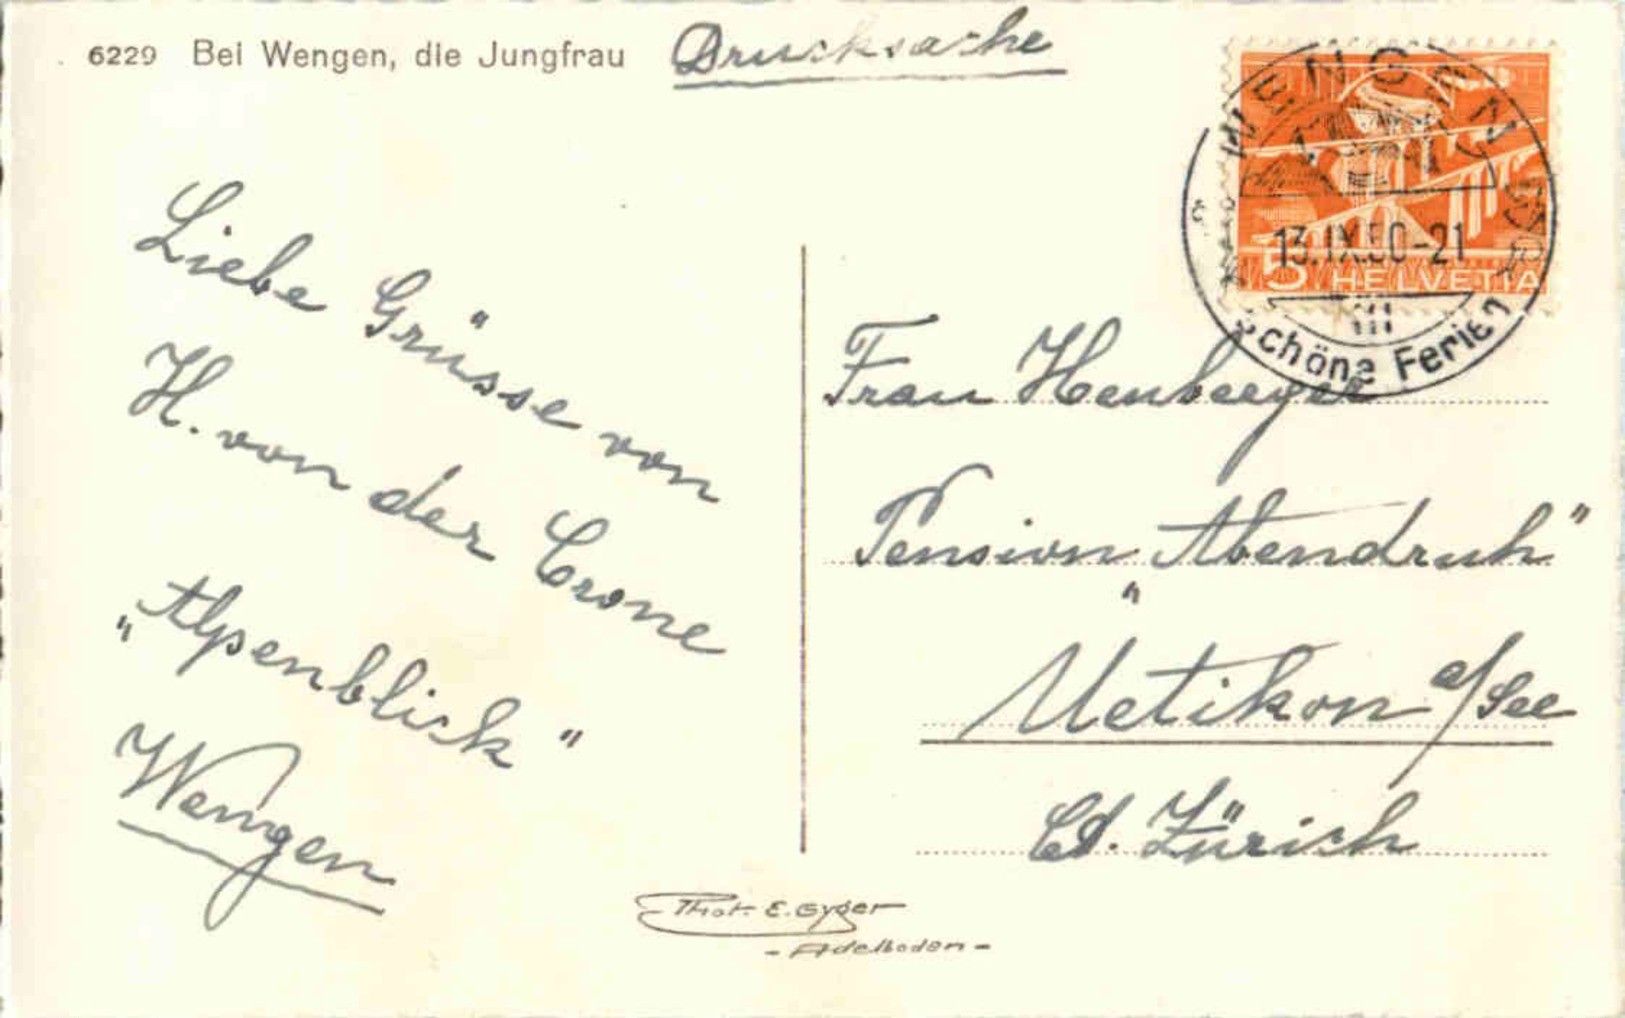 6229 Bei Wengen, die Jungfrau
Drucksache
WENGEN
13.IX.50-21
5 HELVETIA
Schöne Ferien
Liebe Grüsse von
H. von der Crone
„Alpenblick"
Wengen
Frau
Pension „Abendruh"
Uetikon a/See
Ct. Zürich
Phot. E. Gyger
- Adelboden -